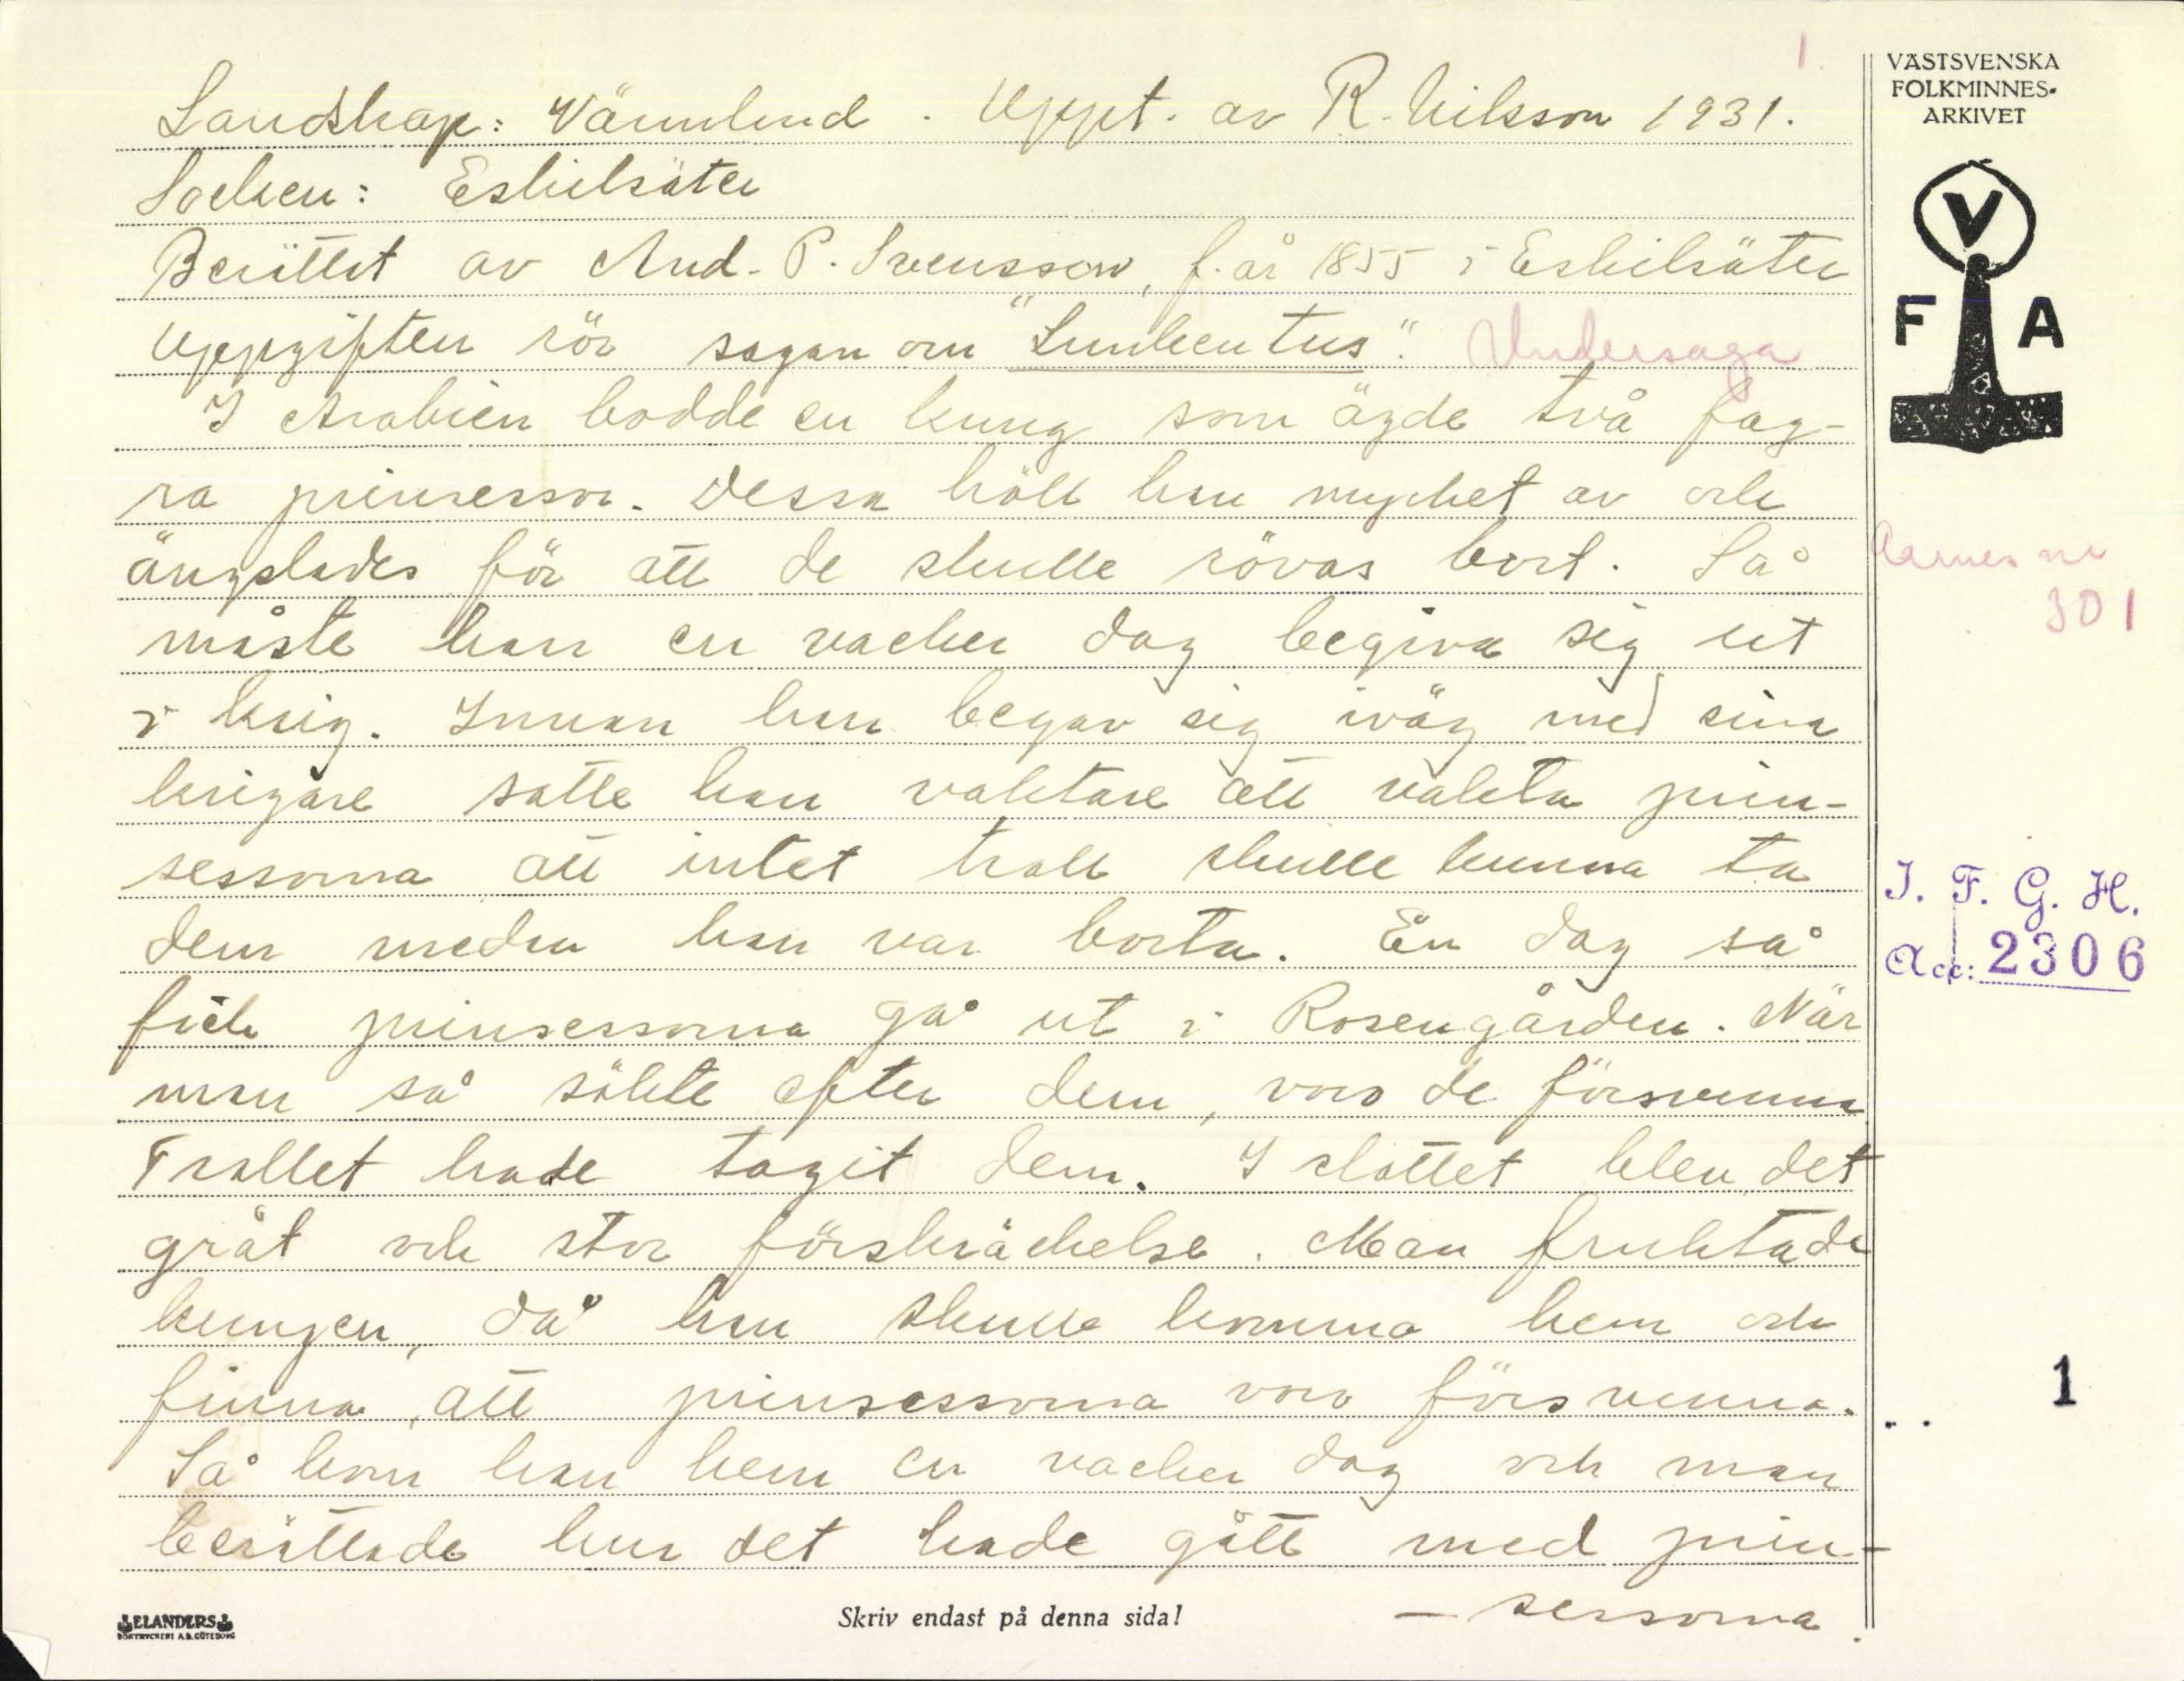 1.
VÄSTSVENSKA
FOLKMINNES-
ARKIVET
V
F A
Landskap: Värmland . Uppt. av R. Nilsson 1931.
Socken: Eskilsäter
Berättat av And. P. Svensson, f. år 1855 i Eskilsäter
Uppgiften rör sagan om "Lunkentus". Undersaga
I Arabien bodde en kung som ägde två fag-
ra prinsessor. Dessa höll han mycket av och
ängslades för att de skulle rövas bort. Så
Aarnes nr
301
måste han en vacker dag begiva sig ut
i krig. Innan han begav sig iväg med sina
krigare satte han vaktare att vakta prin-
sessorna att intet troll skulle kunna ta
J. F. G. H.
Acc: 2306
dem medan han var borta. En dag så
fick prinsessorna gå ut i Rosengården. När
man så sökte efter dem, voro de försvunna
Trollet hade tagit dem. I slottet blev det
gråt och stor förskräckelse. Man fruktade
kungen, då han skulle komma hem och
finna, att prinsessorna voro försvunna.
1
Så kom han hem en vacker dag och man
berättade hur det hade gått med prin-
- sessorna.
ELANDERS
BOKTRYCKERI A.B. GÖTEBORG
Skriv endast på denna sida!